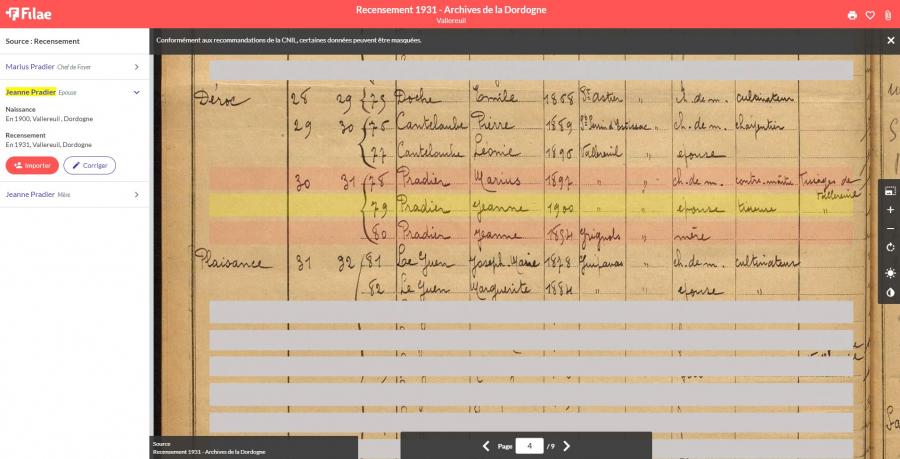 Filae
Recensement 1931 - Archives de la Dordogne
Vallereuil
Source : Recensement
Conformément aux recommandations de la CNIL, certaines données peuvent être masquées.
Marius Pradier Chef de Foyer
Jeanne Pradier Epouse
Naissance
En 1900, Vallereuil, Dordogne
Recensement
En 1931, Vallereuil, Dordogne
Importer
Corriger
Jeanne Pradier Mère
28 29 75 Doche 1868 St Astier " ch. de m. cultivateur
29 30 76 Cantelaube Pierre 1889 " ch. de m. charpentier
77 Cantelaube Léonie 1890 Vallereuil épouse
30 31 78 Pradier Marius 1897 " " ch. de m. contre-maître
79 Pradier Jeanne 1900 " " épouse "
80 Pradier Jeanne 1854 Grignols " mère
Plaisance 31 32 81 Le Guen Joseph Marie 1878 Guipavas " ch. de m. cultivateur
82 Le Guen Marguerite 1884 " " épouse "
Page 4 / 9
Source
Recensement 1931 - Archives de la Dordogne